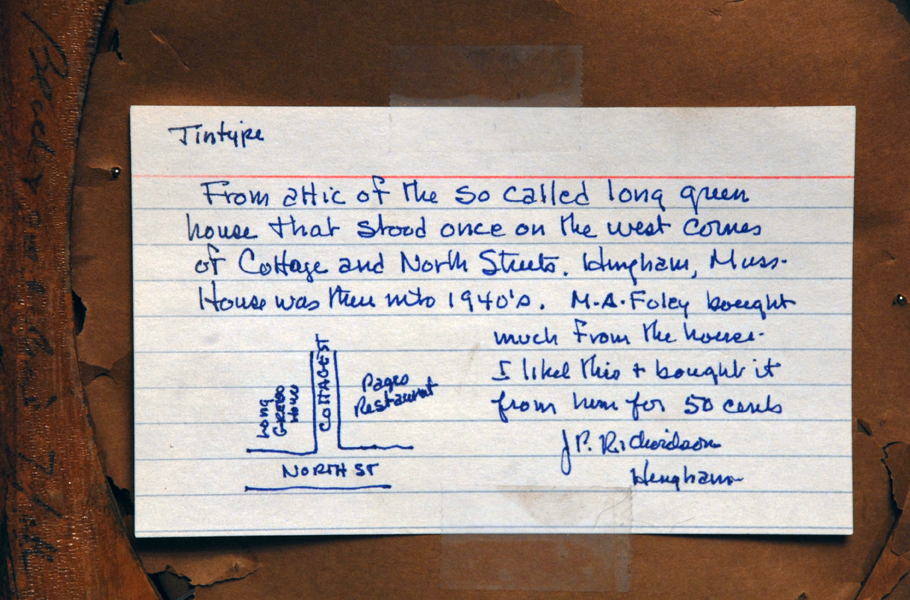 Tintype
From attic of the so called long green
house that stood once on the west corner
of Cottage and North Streets. Hingham, Mass.
House was there into 1940's. M.A. Foley bought
much from the house.
I liked this + bought it
from him for 50 cents
J.P. Richardson
Hingham
Long
Green
House
COTTAGE ST
Pages
Restaurant
NORTH ST